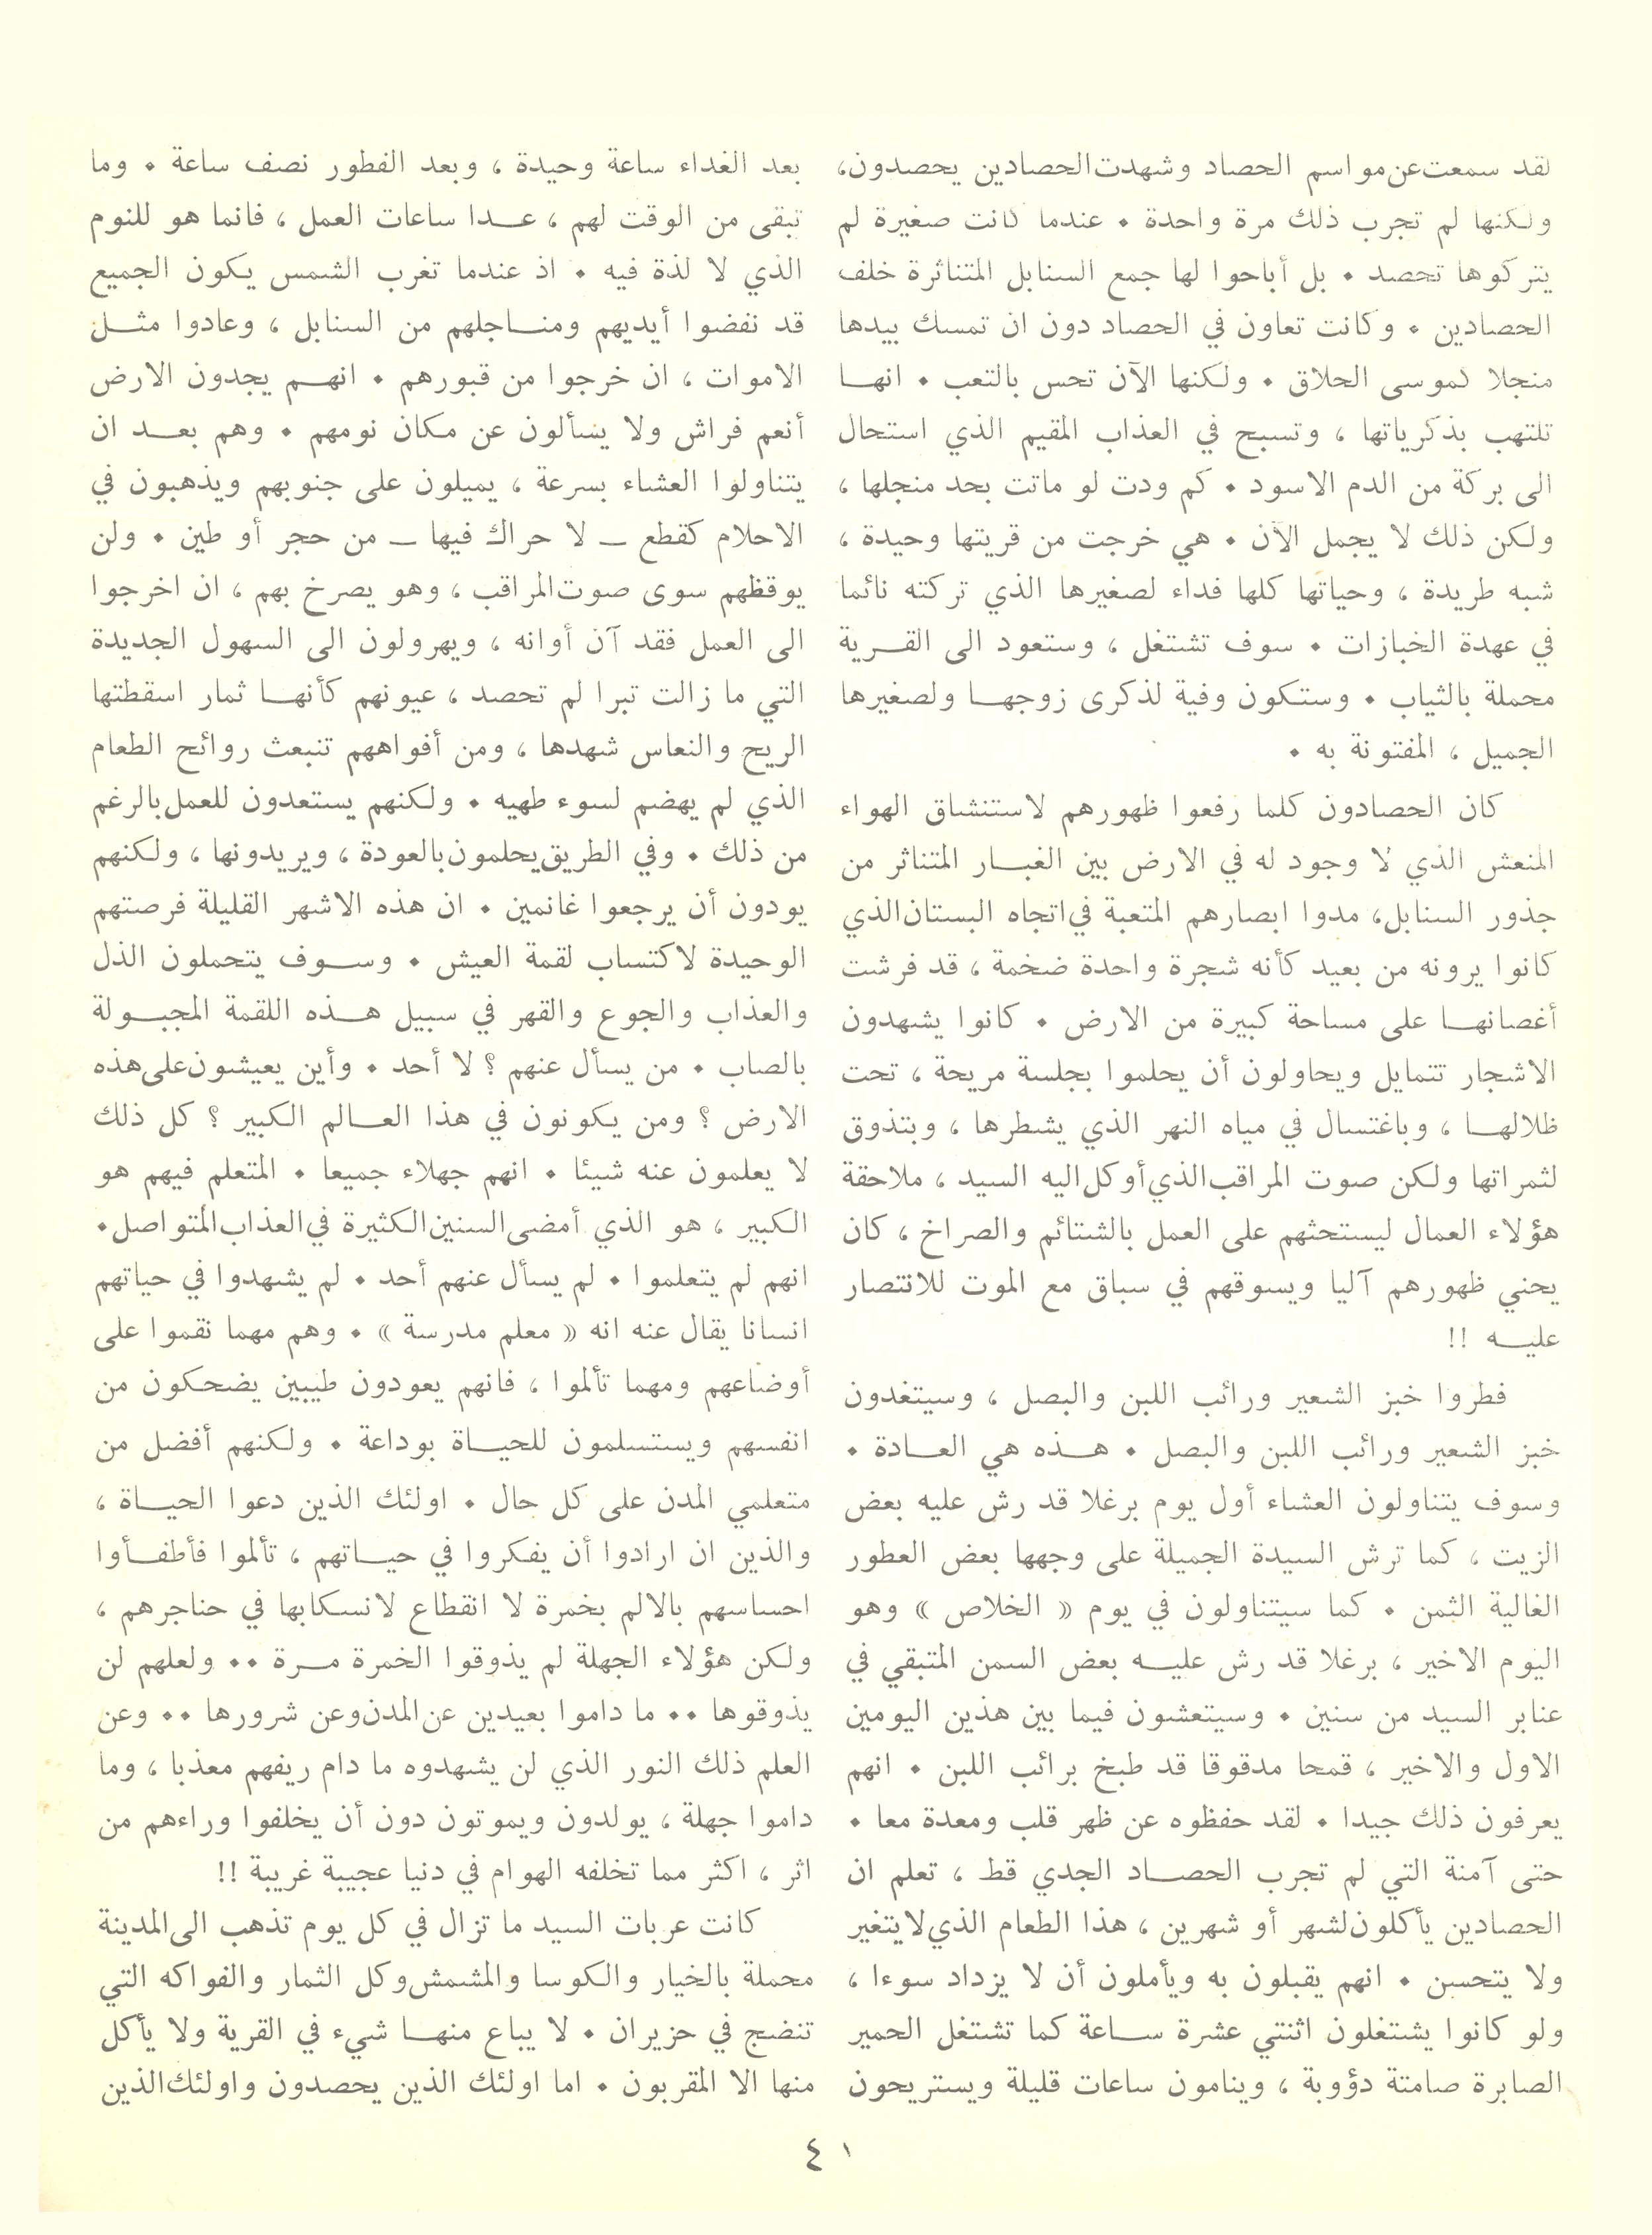 لقد سمعت عن مواسم الحصاد وشهدت الحصادين يحصدون،
ولكنها لم تجرب ذلك مرة واحدة ٠ عندما كانت صغيرة لم
يتركوها تحصد ٠ بل أباحوا لها جمع السنابل المتناثرة خلف
الحصادين ٠ وكانت تعاون في الحصاد دون ان تمسك بيدها
منجلا كموسى الحلاق ٠ ولكنها الآن تحس بالتعب ٠ انهــا
تلتهب بذكرياتها ، وتسبح في العذاب المقيم الذي استحال
الى بركة من الدم الاسود ٠ كم ودت لو ماتت بحد منجلها ،
ولكن ذلك لا يجمل الآن ٠ هي خرجت من قريتها وحيدة ،
شبه طريدة ، وحياتها كلها فداء لصغيرها الذي تركته نائما
في عهدة الخبازات ٠ سوف تشتغل ، وستعود الى القــرية
محملة بالثياب ٠ وستكون وفية لذكرى زوجهــا ولصغيرها
الجميل ، المفتونة به ٠
كان الحصادون كلما رفعوا ظهورهم لاستنشاق الهواء
المنعش الذي لا وجود له في الارض بين الغبــار المتناثر من
جذور السنابل، مدوا ابصارهم المتعبة في اتجاه البستان الذي
كانوا يرونه من بعيد كأنه شجرة واحدة ضخمة ، قد فرشت
أغصانهــا على مساحة كبيرة من الارض ٠ كانوا يشهدون
الاشجار تتمايل ويحاولون أن يحلموا بجلسة مريحة ، تحت
ظلالهــا ، وباغتسال في مياه النهر الذي يشطرها ، وبتذوق
لثمراتها ولكن صوت المراقب الذي أوكل اليه السيد ، ملاحقة
هؤلاء العمال ليستحثهم على العمل بالشتائم والصراخ ، كان
يحني ظهورهم آليا ويسوقهم في سباق مع الموت للانتصار
عليــه !!
فطروا خبز الشعير ورائب اللبن والبصل ، وسيتغدون
خبز الشعير ورائب اللبن والبصل ٠ هــذه هي العــادة ٠
وسوف يتناولون العشاء أول يوم برغلا قد رش عليه بعض
الزيت ، كما ترش السيدة الجميلة على وجهها بعض العطور
الغالية الثمن ٠ كما سيتناولون في يوم « الخلاص » وهو
اليوم الاخير ، برغلا قد رش عليــه بعض السمن المتبقي في
عنابر السيد من سنين ٠ وسيتعشون فيما بين هذين اليومين
الاول والاخير ، قمحا مدقوقا قد طبخ برائب اللبن ٠ انهم
يعرفون ذلك جيدا ٠ لقد حفظوه عن ظهر قلب ومعدة معا ٠
حتى آمنة التي لم تجرب الحصــاد الجدي قط ، تعلم ان
الحصادين يأكلون لشهر أو شهرين ، هذا الطعام الذي لا يتغير
ولا يتحسن ٠ انهم يقبلون به ويأملون أن لا يزداد سوءا ،
ولو كانوا يشتغلون اثنتي عشرة ســاعة كما تشتغل الحمير
الصابرة صامتة دؤوبة ، وينامون ساعات قليلة ويستريحون
بعد الغداء ساعة وحيدة ، وبعد الفطور نصف ساعة ٠ وما
تبقى من الوقت لهم ، عــدا ساعات العمل ، فانما هو للنوم
الذي لا لذة فيه ٠ اذ عندما تغرب الشمس يكون الجميع
قد نفضوا أيديهم ومنــاجلهم من السنابل ، وعادوا مثــل
الاموات ، ان خرجوا من قبورهم ٠ انهــم يجدون الارض
أنعم فراش ولا يسألون عن مكان نومهم ٠ وهم بعــد ان
يتناولوا العشاء بسرعة ، يميلون على جنوبهم ويذهبون في
الاحلام كقطع ــ لا حراك فيها ــ من حجر أو طين ٠ ولن
يوقظهم سوى صوت المراقب ، وهو يصرخ بهم ، ان اخرجوا
الى العمل فقد آن أوانه ، ويهرولون الى السهول الجديدة
التي ما زالت تبرا لم تحصد ، عيونهم كأنهــا ثمار اسقطتها
الريح والنعاس شهدها ، ومن أفواههم تنبعث روائح الطعام
الذي لم يهضم لسوء طهيه ٠ ولكنهم يستعدون للعمل بالرغم
من ذلك ٠ وفي الطريق يحلمون بالعودة ، ويريدونها ، ولكنهم
يودون أن يرجعوا غانمين ٠ ان هذه الاشهر القليلة فرصتهم
الوحيدة لاكتساب لقمة العيش ٠ وســوف يتحملون الذل
والعذاب والجوع والقهر في سبيل هــذه اللقمة المجبــولة
بالصاب ٠ من يسأل عنهم ؟ لا أحد ٠ وأين يعيشون على هذه
الارض ؟ ومن يكونون في هذا العــالم الكبير ؟ كل ذلك
لا يعلمون عنه شيئا ٠ انهم جهلاء جميعا ٠ المتعلم فيهم هو
الكبير ، هو الذي أمضى السنين الكثيرة في العذاب المتواصل٠
انهم لم يتعلموا ٠ لم يسأل عنهم أحد ٠ لم يشهدوا في حياتهم
انسانا يقال عنه انه « معلم مدرسة » ٠ وهم مهما نقموا على
أوضاعهم ومهما تألموا ، فانهم يعودون طيبين يضحكون من
انفسهم ويستسلمون للحيــاة بوداعة ٠ ولكنهم أفضل من
متعلمي المدن على كل حال ٠ اولئك الذين دعوا الحيــاة ،
والذين ان ارادوا أن يفكروا في حيــاتهم ، تألموا فأطفــأوا
احساسهم بالالم بخمرة لا انقطاع لانسكابها في حناجرهم ،
ولكن هؤلاء الجهلة لم يذوقوا الخمرة مــرة ٠٠ ولعلهم لن
يذوقوها ٠٠ ما داموا بعيدين عن المدن وعن شرورها ٠٠ وعن
العلم ذلك النور الذي لن يشهدوه ما دام ريفهم معذبا ، وما
داموا جهلة ، يولدون ويموتون دون أن يخلفوا وراءهم من
اثر ، اكثر مما تخلفه الهوام في دنيا عجيبة غريبة !!
كانت عربات السيد ما تزال في كل يوم تذهب الى المدينة
محملة بالخيار والكوسا والمشمش وكل الثمار والفواكه التي
تنضج في حزيران ٠ لا يباع منهــا شيء في القرية ولا يأكل
منها الا المقربون ٠ اما اولئك الذين يحصدون واولئك الذين
٤١